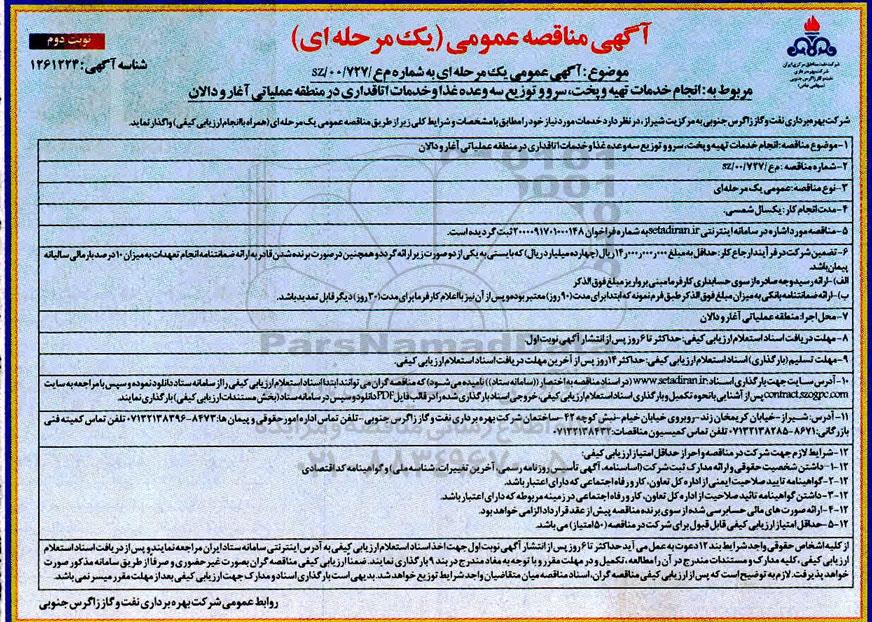 آگهی مناقصه عمومی (یک مرحله ای)
نوبت دوم
شناسه آگهی: ۱۲۶۱۲۲۴
شرکت نفت مناطق مرکزی ایران
شرکت بهره برداری
نفت و گاز زاگرس جنوبی
(سهامی خاص)
موضوع: آگهی عمومی یک مرحله ای به شماره م ع/sz/۰۰/۷۲۷
مربوط به: انجام خدمات تهیه و پخت، سرو و توزیع سه وعده غذا و خدمات اتاقداری در منطقه عملیاتی آغار و دالان
شرکت بهره برداری نفت و گاز زاگرس جنوبی به مرکزیت شیراز، در نظر دارد خدمات مورد نیاز خود را مطابق با مشخصات و شرایط کلی زیر از طریق مناقصه عمومی یک مرحله ای (همراه با انجام ارزیابی کیفی) واگذار نماید.
۱-موضوع مناقصه: انجام خدمات تهیه و پخت، سرو و توزیع سه وعده غذا و خدمات اتاقداری در منطقه عملیاتی آغار و دالان
۲-شماره مناقصه: م ع/sz/۰۰/۷۲۷
۳-نوع مناقصه: عمومی یک مرحله ای
۴-مدت انجام کار: یکسال شمسی.
۵-مناقصه مورد اشاره در سامانه اینترنتی setadiran.ir به شماره فراخوان ۲۰۰۰۰۹۱۷۰۱۰۰۰۱۴۸ ثبت گردیده است.
۶-تضمین شرکت در فرآیند ارجاع کار: حداقل به مبلغ ۱۴٫۰۰۰٫۰۰۰٫۰۰۰ ریال (چهارده میلیارد ریال) که بایستی به یکی از دو صورت زیر ارائه گردد و همچنین در صورت برنده شدن قادر به ارائه ضمانتنامه انجام تعهدات به میزان ۱۰ درصد بار مالی سالیانه
پیمان باشد.
الف)-ارائه رسید وجه صادره از سوی حسابداری کارفرما مبنی بر واریز مبلغ فوق الذکر
ب)-ارائه ضمانتنامه بانکی به میزان مبلغ فوق الذکر طبق فرم نمونه که ابتدا برای مدت (۹۰ روز) معتبر بوده و پس از آن نیز با اعلام کارفرما برای مدت (۳۰ روز) دیگر قابل تمدید باشد.
۷-محل اجرا: منطقه عملیاتی آغار و دالان
۸-مهلت دریافت اسناد استعلام ارزیابی کیفی: حداکثر تا ۶ روز پس از انتشار آگهی نوبت اول.
۹-مهلت تسلیم (بارگذاری) اسناد استعلام ارزیابی کیفی: حداکثر ۱۴ روز پس از آخرین مهلت دریافت اسناد استعلام ارزیابی کیفی.
۱۰-آدرس سایت جهت بارگذاری اسناد: www.setadiran.ir (در اسناد مناقصه به اختصار ((سامانه ستاد)) نامیده می شود) که مناقصه گران می توانند ابتدا اسناد استعلام ارزیابی کیفی را از سامانه ستاد دانلود نموده و سپس با مراجعه به سایت
contract.szogpc.com پس از آشنایی با نحوه تکمیل و بارگذاری اسناد استعلام ارزیابی کیفی، خروجی اسناد بارگذاری شده را در قالب فایل PDF دانلود و سپس در سامانه ستاد (بخش مستندات ارزیابی کیفی) بارگذاری نمایند.
۱۱- آدرس: شیراز-خیابان کریمخان زند-روبروی خیابان خیام-نبش کوچه ۴۲-ساختمان شرکت بهره برداری نفت و گاز زاگرس جنوبی -تلفن تماس اداره امور حقوقی و پیمان ها: ۸۴۷۳-۰۷۱۳۲۱۳۸۳۹۶ تلفن تماس کمیته فنی
بازرگانی: ۸۶۷۱-۰۷۱۳۲۱۳۸۲۸۵ تلفن تماس کمیسیون مناقصات: ۰۷۱۳۲۱۳۸۴۳۲
۱۲-شرایط لازم جهت شرکت در مناقصه و احراز حداقل امتیاز ارزیابی کیفی:
۱۲-۱- داشتن شخصیت حقوقی و ارائه مدارک ثبت شرکت (اساسنامه، آگهی تأسیس روزنامه رسمی، آخرین تغییرات، شناسه ملی) و گواهینامه کد اقتصادی
۱۲-۲-گواهینامه تایید صلاحیت ایمنی از اداره کل تعاون، کار و رفاه اجتماعی که دارای اعتبار باشد.
۱۲-۳-داشتن گواهینامه تائید صلاحیت از اداره کل تعاون، کار و رفاه اجتماعی در زمینه مربوطه که دارای اعتبار باشد.
۱۲-۴-ارائه صورت های مالی حسابرسی شده از سوی برنده مناقصه پیش از عقد قرارداد الزامی خواهد بود.
۱۲-۵-حداقل امتیاز ارزیابی کیفی قابل قبول برای شرکت در مناقصه (۵۰ امتیاز) می باشد.
از کلیه اشخاص حقوقی واجد شرایط بند ۱۲ دعوت به عمل می آید حداکثر تا ۶ روز پس از انتشار آگهی نوبت اول جهت اخذ اسناد استعلام ارزیابی کیفی به آدرس اینترنتی سامانه ستاد ایران مراجعه نمایند و پس از دریافت اسناد استعلام
ارزیابی کیفی، کلیه مدارک و مستندات مندرج در آن را مطالعه، تکمیل و در مهلت مقرر و با توجه به مفاد مندرج در بند ۹ بارگذاری نمایند. ضمناً ارزیابی کیفی مناقصه گران بصورت غیر حضوری و صرفاً از طریق سامانه مذکور صورت
خواهد پذیرفت. لازم به توضیح است که پس از ارزیابی کیفی مناقصه گران، اسناد مناقصه میان متقاضیان واجد شرایط توزیع خواهد شد. بدیهی است بارگذاری اسناد و مدارک جهت ارزیابی کیفی بعد از مهلت مقرر میسر نمی باشد.
روابط عمومی شرکت بهره برداری نفت و گاز زاگرس جنوبی
ParsNamadData